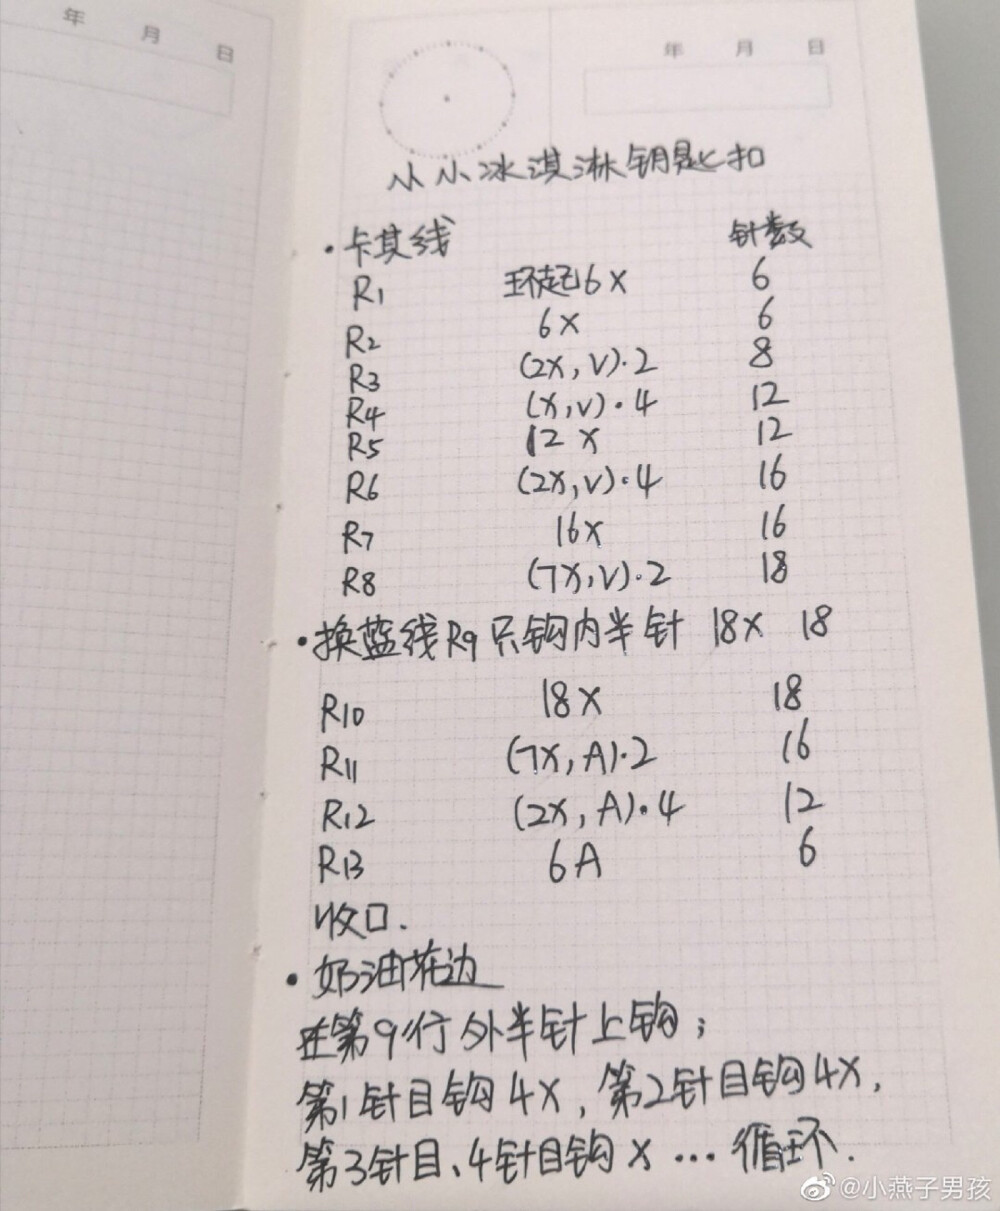 年 月 日
年 月 日
小小冰淇淋钥匙扣
·卡其线 针数
R1 环起6X 6
R2 6X 6
R3 (2X,V)·2 8
R4 (X,V)·4 12
R5 12X 12
R6 (2X,V)·4 16
R7 16X 16
R8 (7X,V)·2 18
·换蓝线R9只钩内半针 18X 18
R10 18X 18
R11 (7X,A)·2 16
R12 (2X,A)·4 12
R13 6A 6
收口.
·奶油花边
在第9行外半针上钩;
第1针目钩4X,第2针目钩4X,
第3针目、4针目钩X…循环.
@小燕子男孩